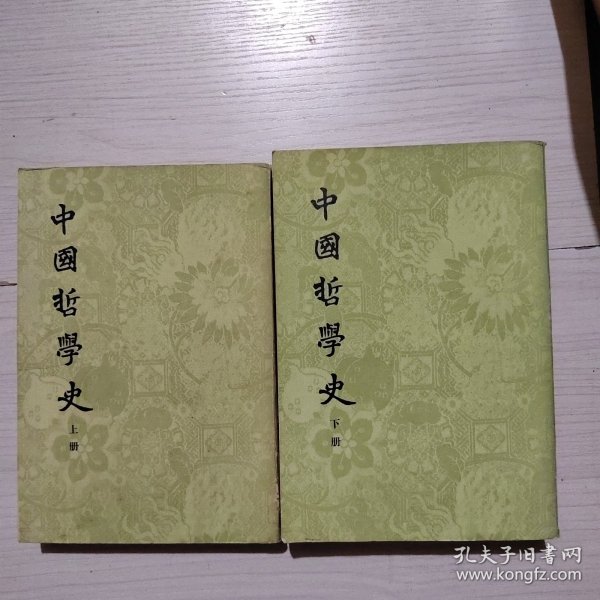 中國哲學史
上册
中國哲學史
下册
孔夫子旧书网
www.kongfz.com